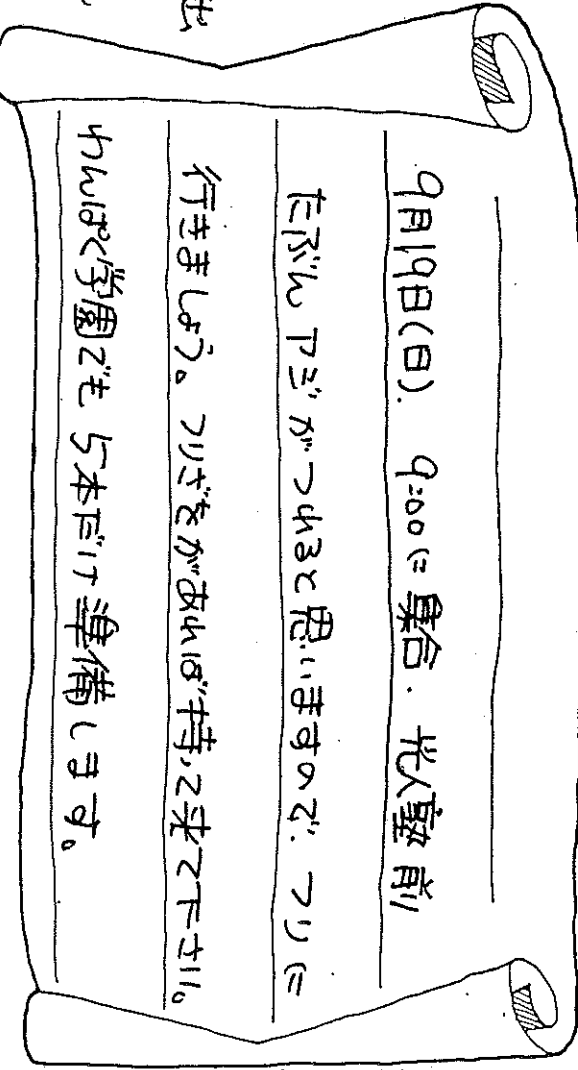 9月19日(日). 9:00に集合. 代人塾前
たぶんアジがつれると思いますので. ツリに
行きましょう。ツリざをがあれば持って来て下さい。
わんぱく学園でも5本だけ準備します。